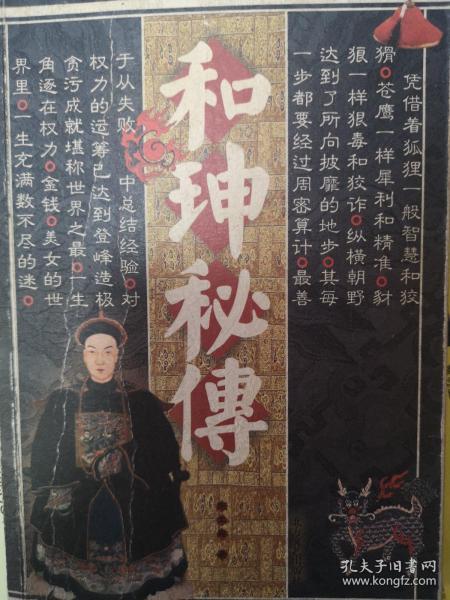 凭借着狐狸一般智慧和狡
猾○苍鹰一样犀利和精准○豺
狼一样狠毒和狡诈○纵横朝野
达到了所向披靡的地步○其每
一步都要经过周密算计○最善
和珅秘傳
于从失败中总结经验○对
权力的运筹已达到登峰造极
贪污成就堪称世界之最○一生
角逐在权力○金钱○美女的世
界里○一生充满数不尽的迷○
孔夫子旧书网
www.kongfz.com